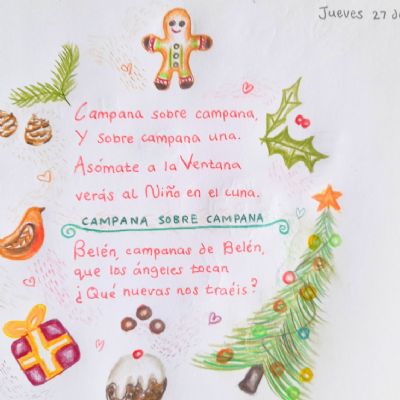 Jueves 27 d
Campana sobre campana,
Y sobre campana una.
Asómate a la Ventana
verás al Niño en el cuna.
CAMPANA SOBRE CAMPANA
Belén, campanas de Belén,
que los ángeles tocan
¿Qué nuevas nos traéis?